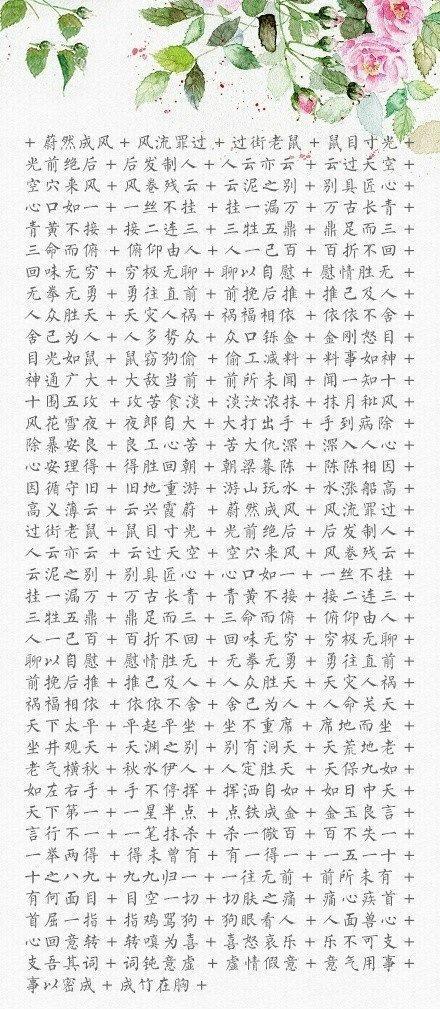 + 蔚然成风 + 风流罪过 + 过街老鼠 + 鼠目寸光 +
光前绝后 + 后发制人 + 人云亦云 + 云过天空 +
空穴来风 + 风卷残云 + 云泥之别 + 别具匠心 +
心口如一 + 一丝不挂 + 挂一漏万 + 万古长青 +
青黄不接 + 接二连三 + 三牲五鼎 + 鼎足而三 +
三命而俯 + 俯仰由人 + 人一己百 + 百折不回 +
回味无穷 + 穷极无聊 + 聊以自慰 + 慰情胜无 +
无拳无勇 + 勇往直前 + 前挽后推 + 推己及人 +
人众胜天 + 天灾人祸 + 祸福相依 + 依依不舍 +
舍己为人 + 人多势众 + 众口铄金 + 金刚怒目 +
目光如鼠 + 鼠窃狗偷 + 偷工减料 + 料事如神 +
神通广大 + 大敌当前 + 前所未闻 + 闻一知十 +
十围五攻 + 攻苦食淡 + 淡妆浓抹 + 抹月秕风 +
风花雪夜 + 夜郎自大 + 大打出手 + 手到病除 +
除暴安良 + 良工心苦 + 苦大仇深 + 深入人心 +
心安理得 + 得胜回朝 + 朝梁暮陈 + 陈陈相因 +
因循守旧 + 旧地重游 + 游山玩水 + 水涨船高 +
高义薄云 + 云兴霞蔚 + 蔚然成风 + 风流罪过 +
过街老鼠 + 鼠目寸光 + 光前绝后 + 后发制人 +
人云亦云 + 云过天空 + 空穴来风 + 风卷残云 +
云泥之别 + 别具匠心 + 心口如一 + 一丝不挂 +
挂一漏万 + 万古长青 + 青黄不接 + 接二连三 +
三牲五鼎 + 鼎足而三 + 三命而俯 + 俯仰由人 +
人一己百 + 百折不回 + 回味无穷 + 穷极无聊 +
聊以自慰 + 慰情胜无 + 无拳无勇 + 勇往直前 +
前挽后推 + 推己及人 + 人众胜天 + 天灾人祸 +
祸福相依 + 依依不舍 + 舍己为人 + 人命关天 +
天下太平 + 平起平坐 + 坐不重席 + 席地而坐 +
坐井观天 + 天渊之别 + 别有洞天 + 天荒地老 +
老气横秋 + 秋水伊人 + 人定胜天 + 天保九如 +
如左右手 + 手不停挥 + 挥洒自如 + 如日中天 +
天下第一 + 一星半点 + 点铁成金 + 金玉良言 +
言行不一 + 一笔抹杀 + 杀一儆百 + 百不失一 +
一举两得 + 得未曾有 + 有一得一 + 一五一十 +
十之八九 + 九九归一 + 一往无前 + 前所未有 +
有何面目 + 目空一切 + 切肤之痛 + 痛心疾首 +
首屈一指 + 指鸡骂狗 + 狗眼看人 + 人面兽心 +
心回意转 + 转嗔为喜 + 喜怒哀乐 + 乐不可支 +
支吾其词 + 词钝意虚 + 虚情假意 + 意气用事 +
事以密成 + 成竹在胸 +